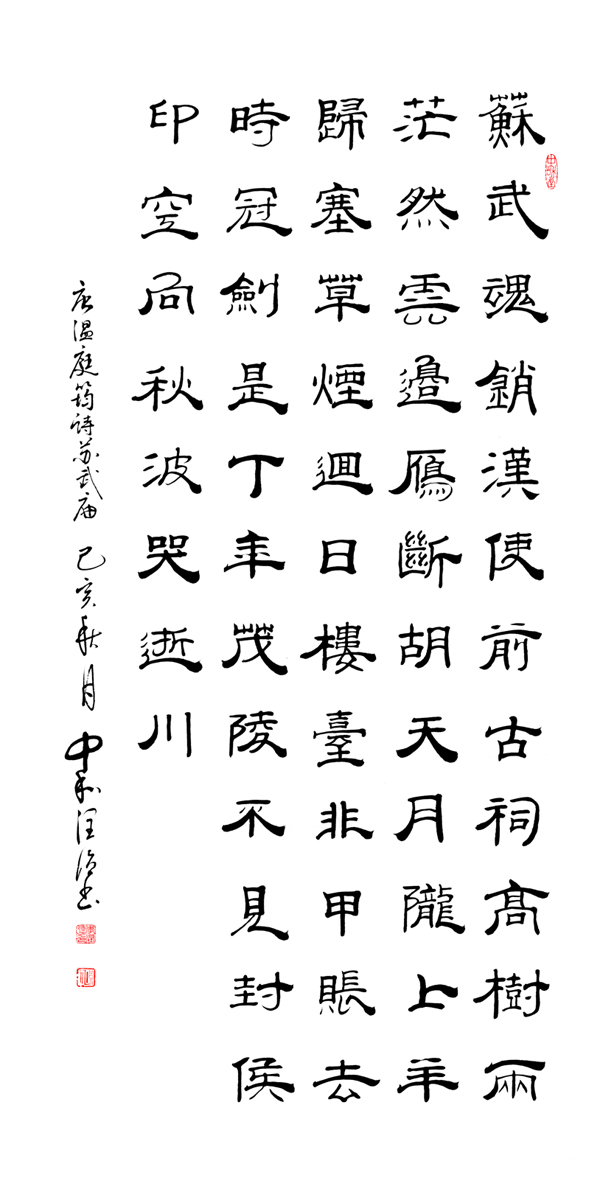 蘇武魂銷漢使前古祠髙樹兩
茫然雲邊鴈斷胡天月隴上羊
歸塞草煙迴日樓臺非甲賬去
時冠劍是丁年茂陵不見封侯
印空向秋波哭逝川
唐温庭筠诗苏武庙 己亥秋月 中和汪书